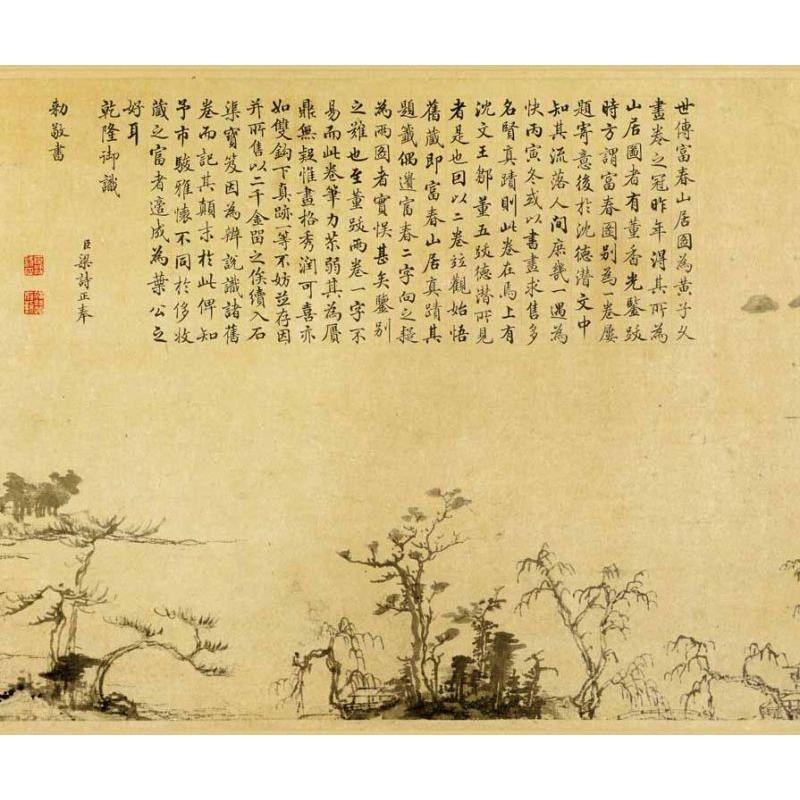 世傳富春山居圖為黃子久
畫卷之冠昨年得其所為
山居圖者有董香光鑒跋
時方謂富春圖別為一卷屢
題寄意後於沈德潛文中
知其流落人間庶幾一遇為
快丙寅冬或以書畫求售多
名賢真蹟則此卷在焉上有
沈文王鄒董五跋德潛所見
者是也因以二卷並觀始悟
舊藏即富春山居真蹟其
題籤偶遺富春二字向之疑
為兩圖者實悞甚矣鑒別
之難也至董跋兩卷一字不
易而此卷筆力苶弱其為贋
鼎無疑惟畫格秀潤可喜亦
如雙鈎下真跡一等不妨並存因
并所售以二千金留之俟續入石
渠寶笈因為辨說識諸舊
卷而記其顛末於此俾知
予市駿雅懷不同於侈收
藏之富者適成為葉公之
好耳
乾隆御識
臣梁詩正奉
勅敬書